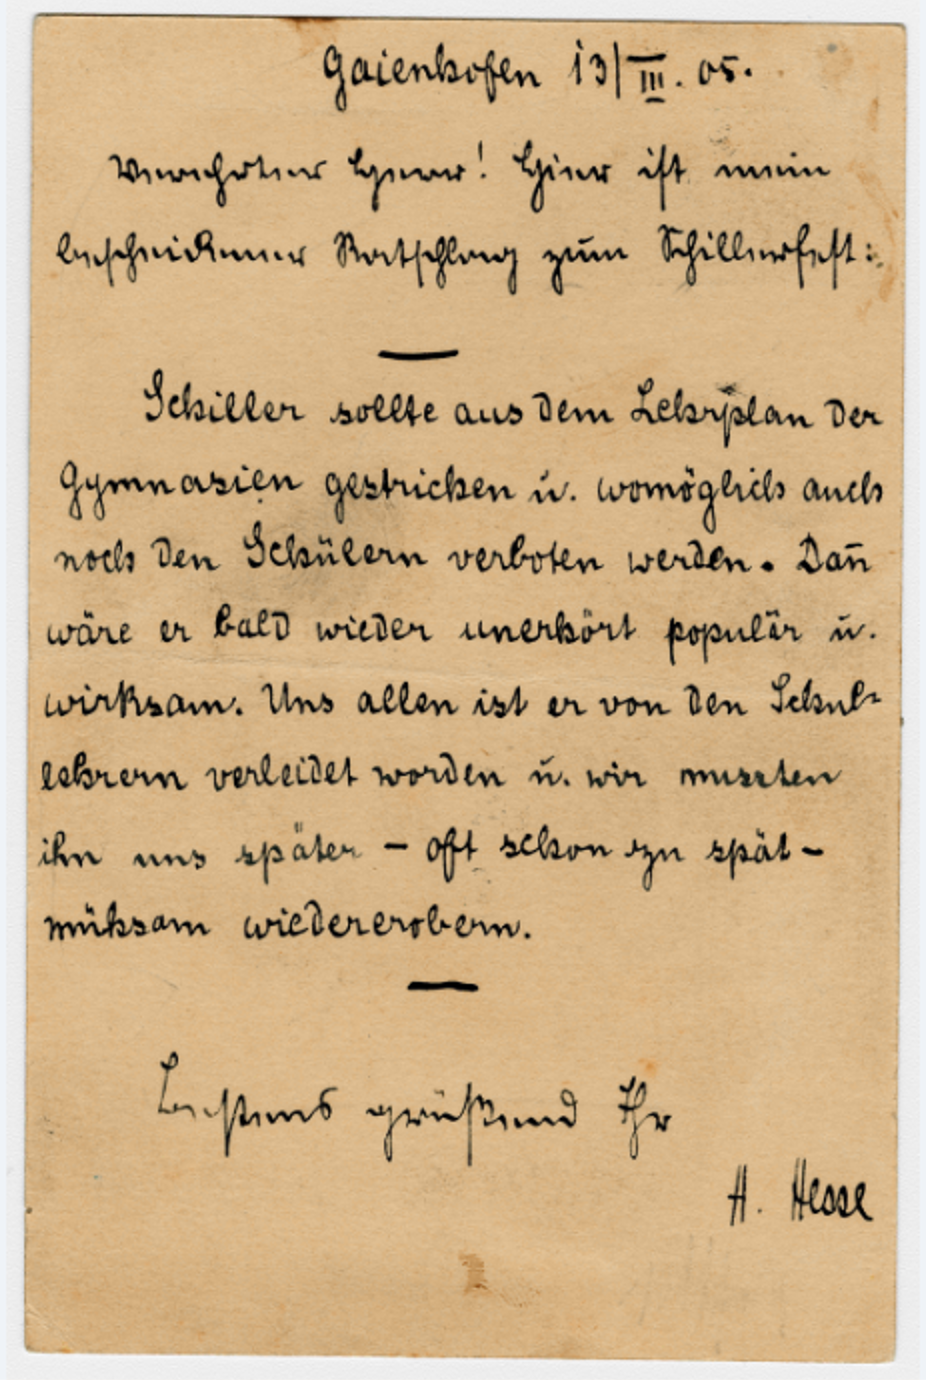 Gaienhofen 13/III. 05.
Verehrter Herr! Hier ist mein
bescheidener Ratschlag zum Schillerfest:
Schiller sollte aus dem Lehrplan der
Gymnasien gestrichen u. womöglich auch
noch den Schülern verboten werden. Dan̄
wäre er bald wieder unerhört populär u.
wirksam. Uns allen ist er von den Schul-
lehrern verleidet worden u. wir mussten
ihn uns später – oft schon zu spät –
mühsam wiedererobern.
Bestens grüßend Ihr
H. Hesse